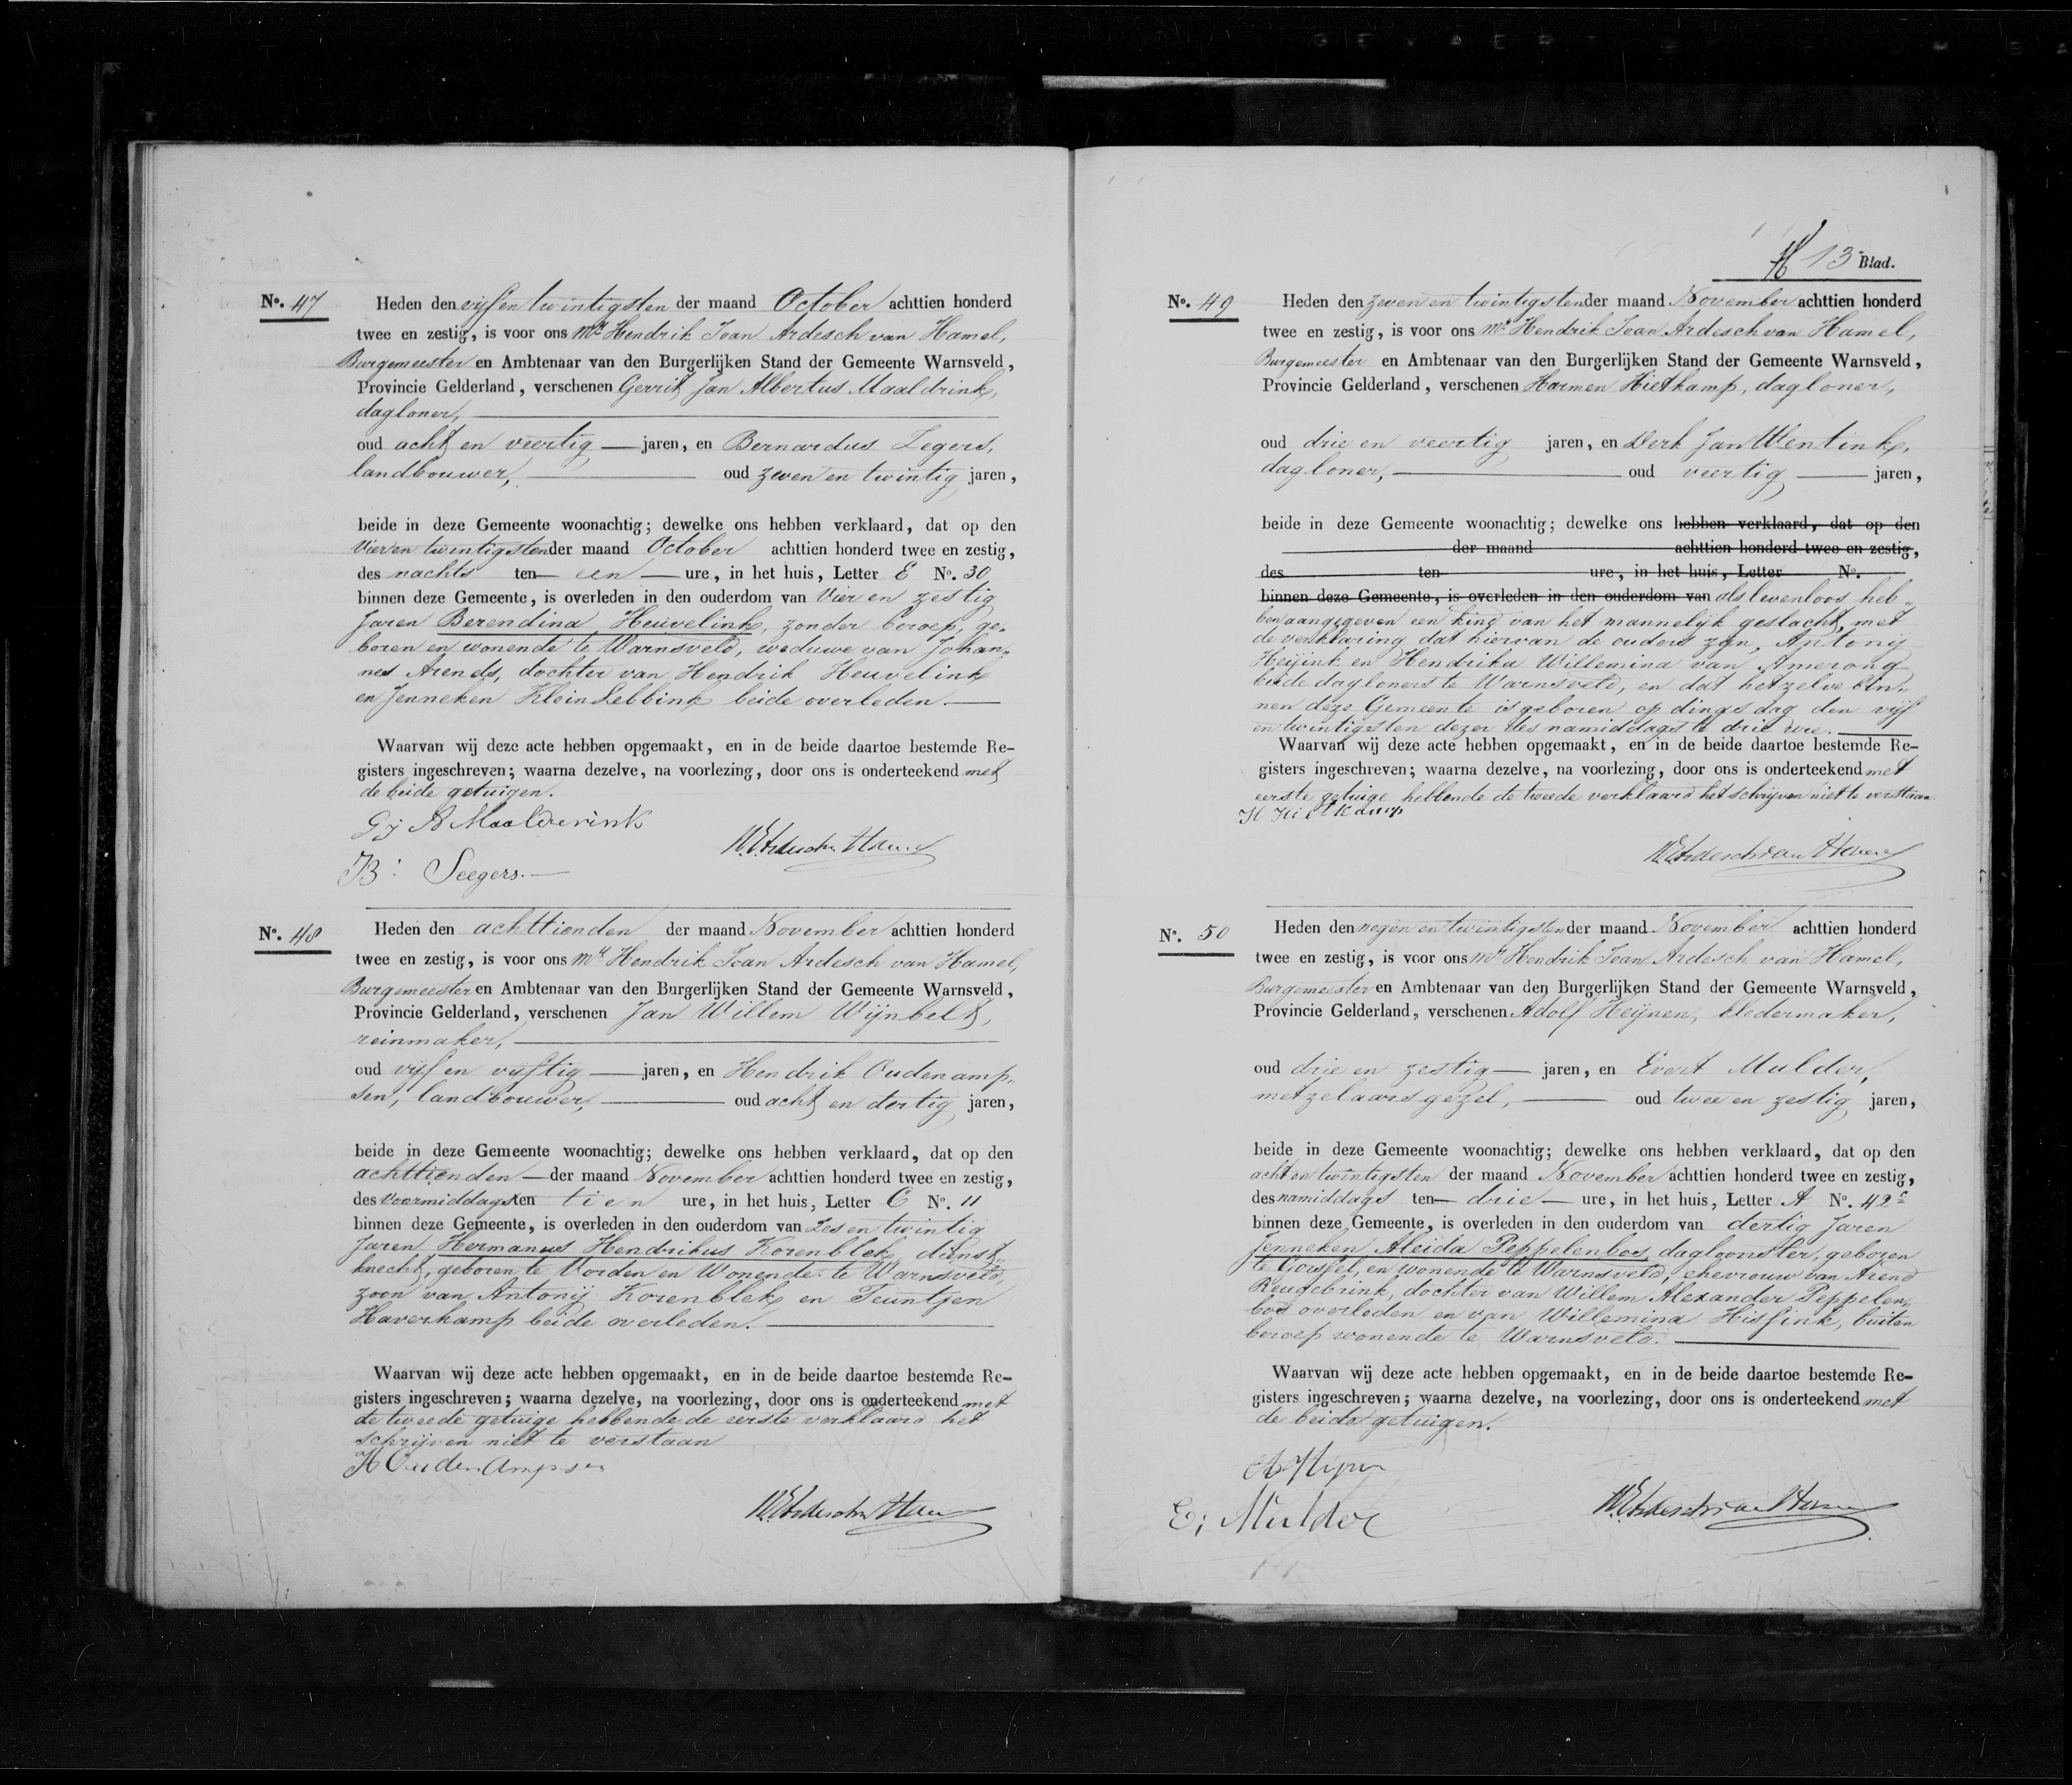 No. 47
Heden den vijf en twintigsten der maand October achttien honderd
twee en zestig, is voor ons Mr Hendrik Ivan Ardesch van Hamel,
Burgemeester en Ambtenaar van den Burgerlijken Stand der Gemeente Warnsveld,
Provincie Gelderland, verschenen Gerrit Jan Albertus Maaldrink,
dagloner,
oud acht en veertig jaren, en Bernardus Zegers,
landbouwer, oud zeven en twintig jaren,
beide in deze Gemeente woonachtig; dewelke ons hebben verklaard, dat op den
Vier en twintigsten der maand October achttien honderd twee en zestig,
des nachts ten een ure, in het huis, Letter E No. 30
binnen deze Gemeente, is overleden in den ouderdom van Vier en zestig
Jaren Berendina Heuvelink, zonder beroep, ge-
boren en wonende te Warnsveld, weduwe van Johan-
nes Arends, dochter van Hendrik Heuvelink
en Jenneken Klein Lebbink beide overleden.
Waarvan wij deze acte hebben opgemaakt, en in de beide daartoe bestemde Re-
gisters ingeschreven; waarna dezelve, na voorlezing, door ons is onderteekend met
de beide getuigen.
G j A Maalderink
B: Seegers.
No. 48
Heden den achttienden der maand November achttien honderd
twee en zestig, is voor ons Mr Hendrik Ivan Ardesch van Hamel,
Burgemeester en Ambtenaar van den Burgerlijken Stand der Gemeente Warnsveld,
Provincie Gelderland, verschenen Jan Willem Wijnbelt,
reinmaker,
oud vijf en vijftig jaren, en Hendrik Oudenamp-
sen, landbouwer, oud acht en dertig jaren,
beide in deze Gemeente woonachtig; dewelke ons hebben verklaard, dat op den
achttienden der maand November achttien honderd twee en zestig,
des Voormiddags ten tien ure, in het huis, Letter C No. 11
binnen deze Gemeente, is overleden in den ouderdom van Zes en twintig
Jaren Hermanus Hendrikus Korenblek, dienst-
knecht, geboren te Vorden en Wonende te Warnsveld,
zoon van Antonij Korenblek en Teuntjen
Haverkamp beide overleden.
Waarvan wij deze acte hebben opgemaakt, en in de beide daartoe bestemde Re-
gisters ingeschreven; waarna dezelve, na voorlezing, door ons is onderteekend met
de tweede getuige hebbende de eerste verklaard het
schrijven niet te verstaan
H Oudenampsen
13 Blad.
No. 49
Heden den zeven en twintigsten der maand November achttien honderd
twee en zestig, is voor ons Mr Hendrik Ivan Ardesch van Hamel,
Burgemeester en Ambtenaar van den Burgerlijken Stand der Gemeente Warnsveld,
Provincie Gelderland, verschenen Harmen Hietkamp, dagloner,
oud drie en veertig jaren, en Derk Jan Wentink,
dagloner, oud veertig jaren,
beide in deze Gemeente woonachtig; dewelke ons hebben verklaard, dat op den
der maand achttien honderd twee en zestig,
des ten ure, in het huis, Letter No.
binnen deze Gemeente, is overleden in den ouderdom van als levenloos heb-
ben aangegeven een kind van het mannelijk geslacht, met
de verklaring dat hiervan de ouders zijn, Antonij
Heijink en Hendrika Willemina van Amerong
beide dagloners te Warnsveld, en dat hetzelve bin-
nen deze Gemeente is geboren op dingsdag den vijf
en twintigsten dezer des namiddags te drie ure.
Waarvan wij deze acte hebben opgemaakt, en in de beide daartoe bestemde Re-
gisters ingeschreven; waarna dezelve, na voorlezing, door ons is onderteekend met
eerste getuige hebbende de tweede verklaard het schrijven niet te verstaan.
H Hietkamp
No. 50
Heden den negen en twintigsten der maand November achttien honderd
twee en zestig, is voor ons Mr Hendrik Ivan Ardesch van Hamel,
Burgemeester en Ambtenaar van den Burgerlijken Stand der Gemeente Warnsveld,
Provincie Gelderland, verschenen Adolf Heijnen, kledermaker,
oud drie en zestig jaren, en Evert Mulder,
metzelaarsgezel, oud twee en zestig jaren,
beide in deze Gemeente woonachtig; dewelke ons hebben verklaard, dat op den
acht en twintigsten der maand November achttien honderd twee en zestig,
des namiddags ten drie ure, in het huis, Letter A No. 42c
binnen deze Gemeente, is overleden in den ouderdom van dertig Jaren
Jenneken Aleida Peppelenbos, dagloonster, geboren
te Gorssel, en wonende te Warnsveld, ehevrouw van Arend
Reugebrink, dochter van Willem Alexander Peppelen-
bos overleden en van Willemina Hissink, buiten
beroep wonende te Warnsveld.
Waarvan wij deze acte hebben opgemaakt, en in de beide daartoe bestemde Re-
gisters ingeschreven; waarna dezelve, na voorlezing, door ons is onderteekend met
de beide getuigen.
E; Mulder